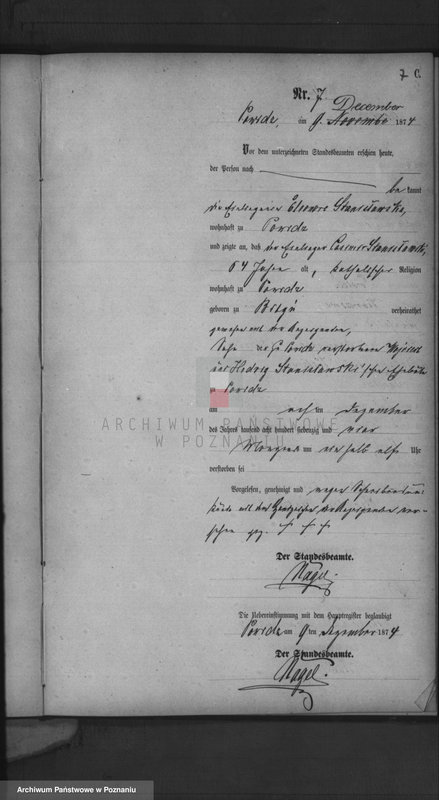 7 C.
Nr. 7
December
Powidz, am 9. November 1874
Vor dem unterzeichneten Standesbeamten erschien heute,
der Person nach
be kannt
Eleonore Stanislawska,
wohnhaft zu Powidz
und zeigte an, daß der Casimir Stanislawski,
54 Jahre alt, katholischer Religion
wohnhaft zu Powidz
geboren zu verheirathet
gewesen mit der Anzeigenden,
Sohn der zu Powidz verstorbenen
und Hedwig Stanislawski'schen Eheleute
zu Powidz
am ten Dezember
des Jahres tausend acht hundert siebenzig und vier
Morgens um elf Uhr
verstorben sei
Vorgelesen, genehmigt und wegen
mit der Anzeigenden ver-
sehen gez. † † †
Der Standesbeamte.
Nagel.
Die Uebereinstimmung mit dem Hauptregister beglaubigt
Powidz am 9 ten Dezember 1874
Der Standesbeamte.
Nagel.
ARCHIWUM PAŃSTWOWE
W POZNANIU
Archiwum Państwowe w Poznaniu